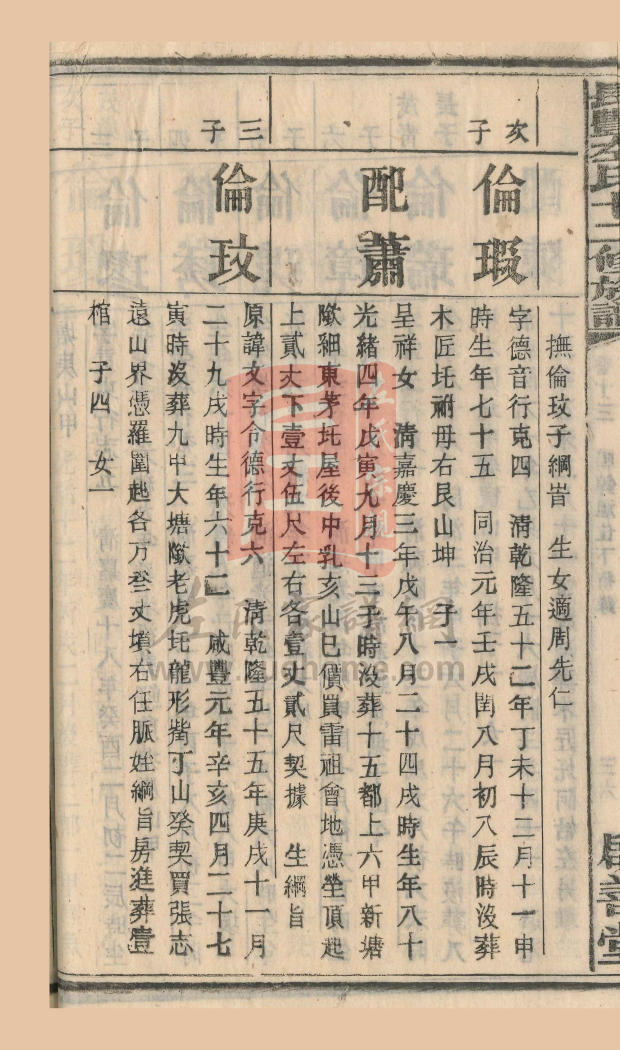 長豐左氏十二修族譜
卷十三
居善堂
撫倫玟子綱旹 生女適周先仁
次子
倫瑕
字德音行克四 清乾隆五十二年丁未十二月十一申
時生年七十五 同治元年壬戌閏八月初八辰時沒葬
木匠圫祔母右艮山坤 子一
配蕭
呈祥女 清嘉慶三年戊午八月二十四戌時生年八十
光緒四年戊寅九月十三子時沒葬十五都上六甲新塘
㘭細東茅圫屋後中乳亥山巳價買雷祖會地憑塋頂起
上貳丈下壹丈伍尺左右各壹丈貳尺契據 生綱旨
三子
倫玟
原諱文字令德行克六 清乾隆五十五年庚戌十一月
二十九戌時生年六十二 咸豐元年辛亥四月二十七
寅時沒葬九甲大塘㘭老虎圫龍形觜丁山癸契買張志
遠山界憑羅圍起各方叄丈墳右任脈姪綱旨房進葬壹
棺 子四 女一
左氏家譜網